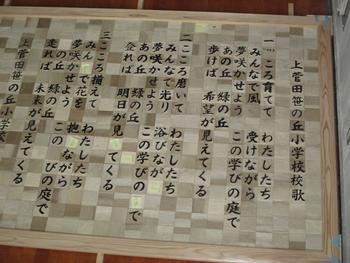 上菅田笹の丘小学校校歌
一 こころ育てて わたしたち
みんなで風 受けながら
夢咲かせよう この学びの庭で
あの丘 緑の丘
歩けば 希望が見えてくる
二 こころ磨いて わたしたち
みんなで光り 浴びなが
夢咲かせよう この学びの で
あの丘 緑の丘
登れば 明日が見 てくる
三 こころ揃えて わたしたち
みんなで花を 抱 ながら
夢咲かせよう この びの庭で
の丘 緑の丘
走れば 未来が見えてくる
上菅田笹の丘小学校